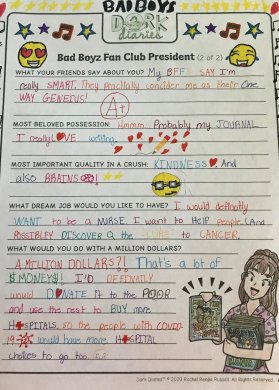 BAD BOYS
DORK
diaries
Bad Boyz Fan Club President (2 of 2)
WHAT YOUR FRIENDS SAY ABOUT YOU? My BFF SAY I'm
really SMART. They practially consider me as their One
WAY GENEIUS!
A+
MOST BELOVED POSSESSION: Hmmm. Probably my JOURNAL
I really LOVE writing.
MOST IMPORTANT QUALITY IN A CRUSH: KINDNESS And
also BRAINS!
WHAT DREAM JOB WOULD YOU LIKE TO HAVE? I would definatly
WANT to be a NURSE. I want to HElP people. (And
POSSIBLEY DISCOVER the CURE to CANCER
WHAT WOULD YOU DO WITH A MILLION DOLLARS?
A MILLION DOLLARS?! That's a lot of
$MONEY$! I'D DEFINATLY
would DONATE it to the POOR
and use the rest to BUY more
HOSPITALS, so the people with COVID
19 would have more HOSPITAL
choices to go too.
Dork Diaries™ ©2020 Rachel Renée Russell. All Rights Reserved.